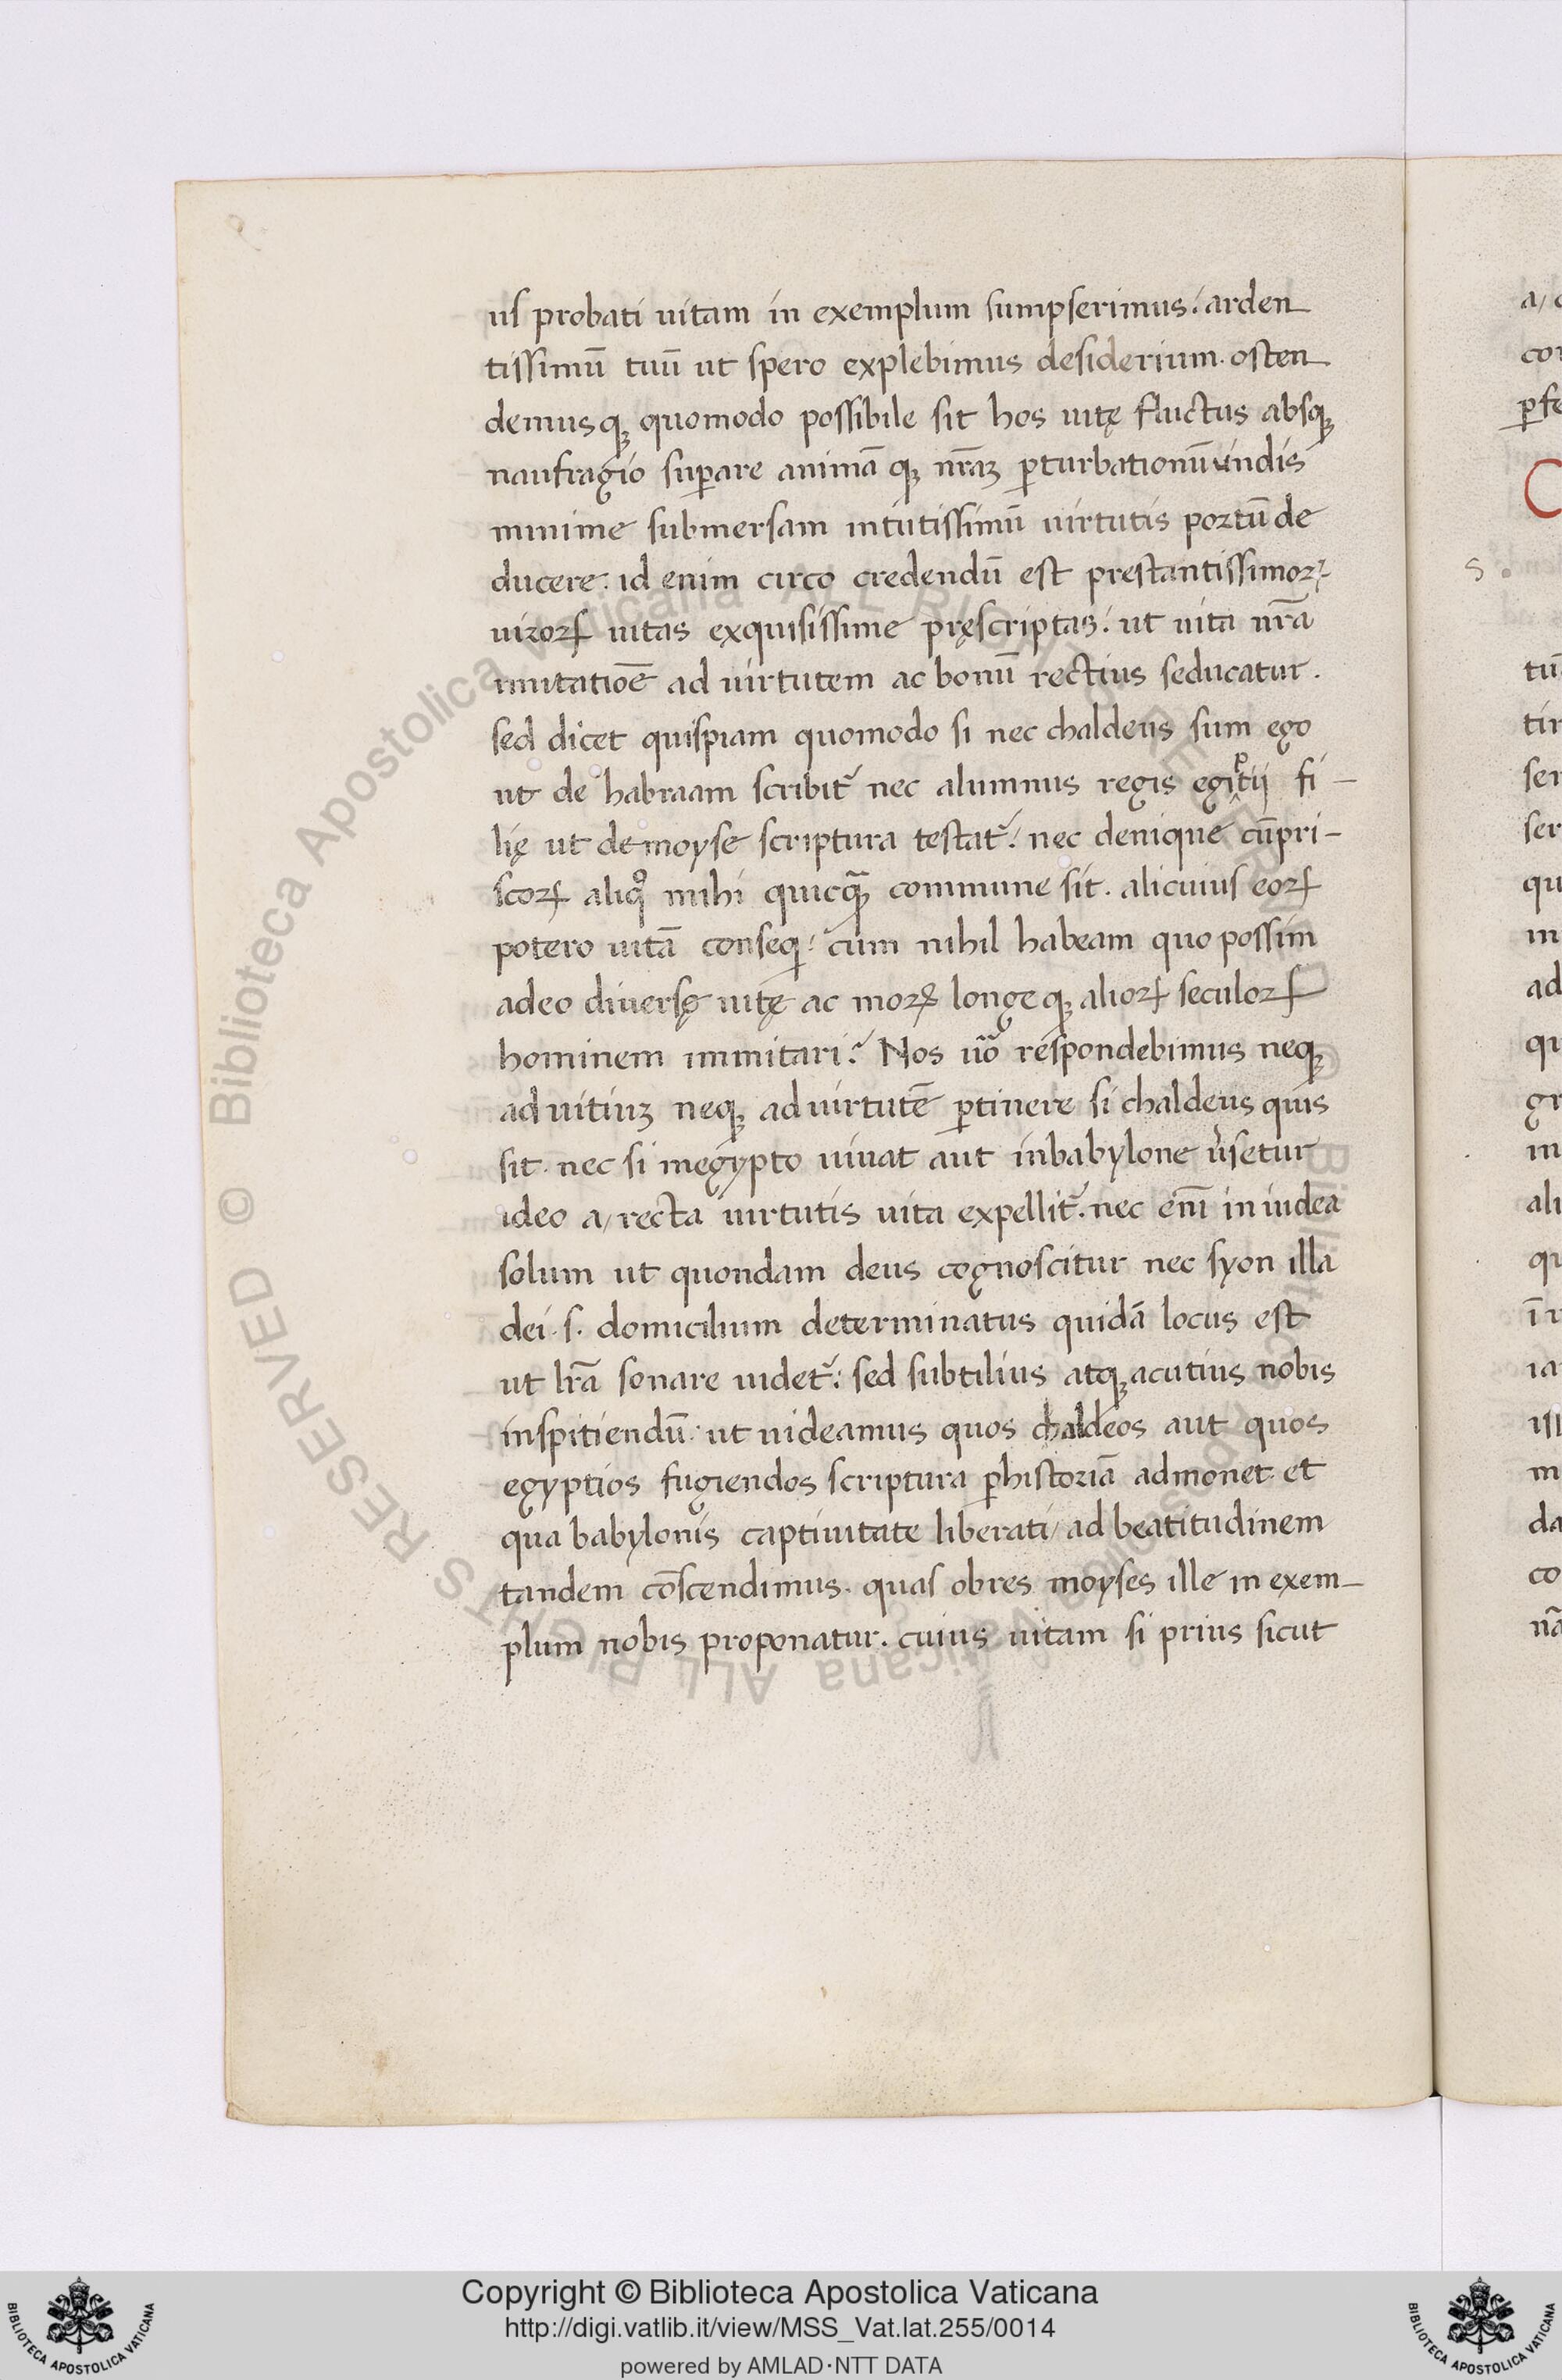 us probati uitam in exemplum sumpserimus: arden
tissimū tuū ut spero explebimus desiderium. osten
demusq; quomodo possibile sit hos uitę fluctus absq;
naufragio suꝑare animā q; nr̄aꝫ ꝑturbationū undis
minime submersam intutissimū uirtutis portū de
ducere. id enim circo credendū est prestantissimoꝝ
uiroꝝ uitas exquisissime pręscriptas: ut uita nr̄a
imitatiōe ad uirtutem ac bonū rectius seducatur.
sed dicet quispiam quomodo si nec chaldeus sum ego
ut de habraam scribit᷑ nec alumnus regis egiptii fi-
lię ut de moyse scriptura testat᷑: nec denique cū pri-
scoꝝ aliqͦ mihi quicqᷓ commune sit. alicuius eoꝝ
potero uitā conseqi: cum nihil habeam quo possim
adeo diuersę uitę ac moꝝ longeq; alioꝝ seculoꝝ
hominem immitari? Nos uōo respondebimus neq;
ad uitiuꝫ neq; ad uirtutē ꝑtinere si chaldeus quis
sit. nec si inegypto uiuat aut inbabylone ūsetur
ideo a/ recta uirtutis uita expellit᷑. nec enī in iudea
solum ut quondam deus cognoscitur nec syon illa
dei .s. domicilium determinatus quidā locus est
ut lr̄a sonare uidet᷑: sed subtilius atq; acutius nobis
inspitiendū. ut uideamus quos chaldeos aut quos
egyptios fugiendos scriptura ꝑhistoriā admonet. et
qua babylonis captiuitate liberati/ ad beatitudinem
tandem cōscendimus. quas obres moyses ille in exem-
plum nobis proponatur. cuius uitam si prius sicut
s.
Copyright © Biblioteca Apostolica Vaticana
http://digi.vatlib.it/view/MSS_Vat.lat.255/0014
powered by AMLAD·NTT DATA
BIBLIOTECA APOSTOLICA VATICANA
BIBLIOTECA APOSTOLICA VATICANA
© Biblioteca Apostolica Vaticana ALL RIGHTS RESERVED